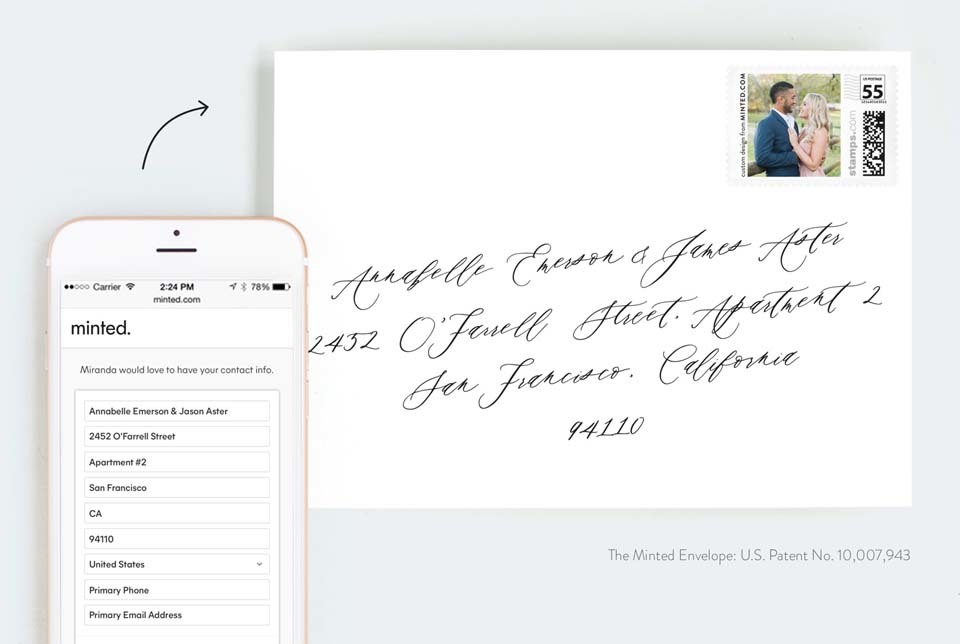 custom design from MINTED.COM
US POSTAGE
55
stamps.com
Annabelle Emerson & James Aster
2452 O'Farrell Street. Apartment 2
San Francisco. California
94110
Carrier 2:24 PM 78%
minted.com
minted.
Miranda would love to have your contact info.
Annabelle Emerson & Jason Aster
2452 O'Farrell Street
Apartment #2
San Francisco
CA
94110
United States
Primary Phone
Primary Email Address
The Minted Envelope: U.S. Patent No. 10,007,943